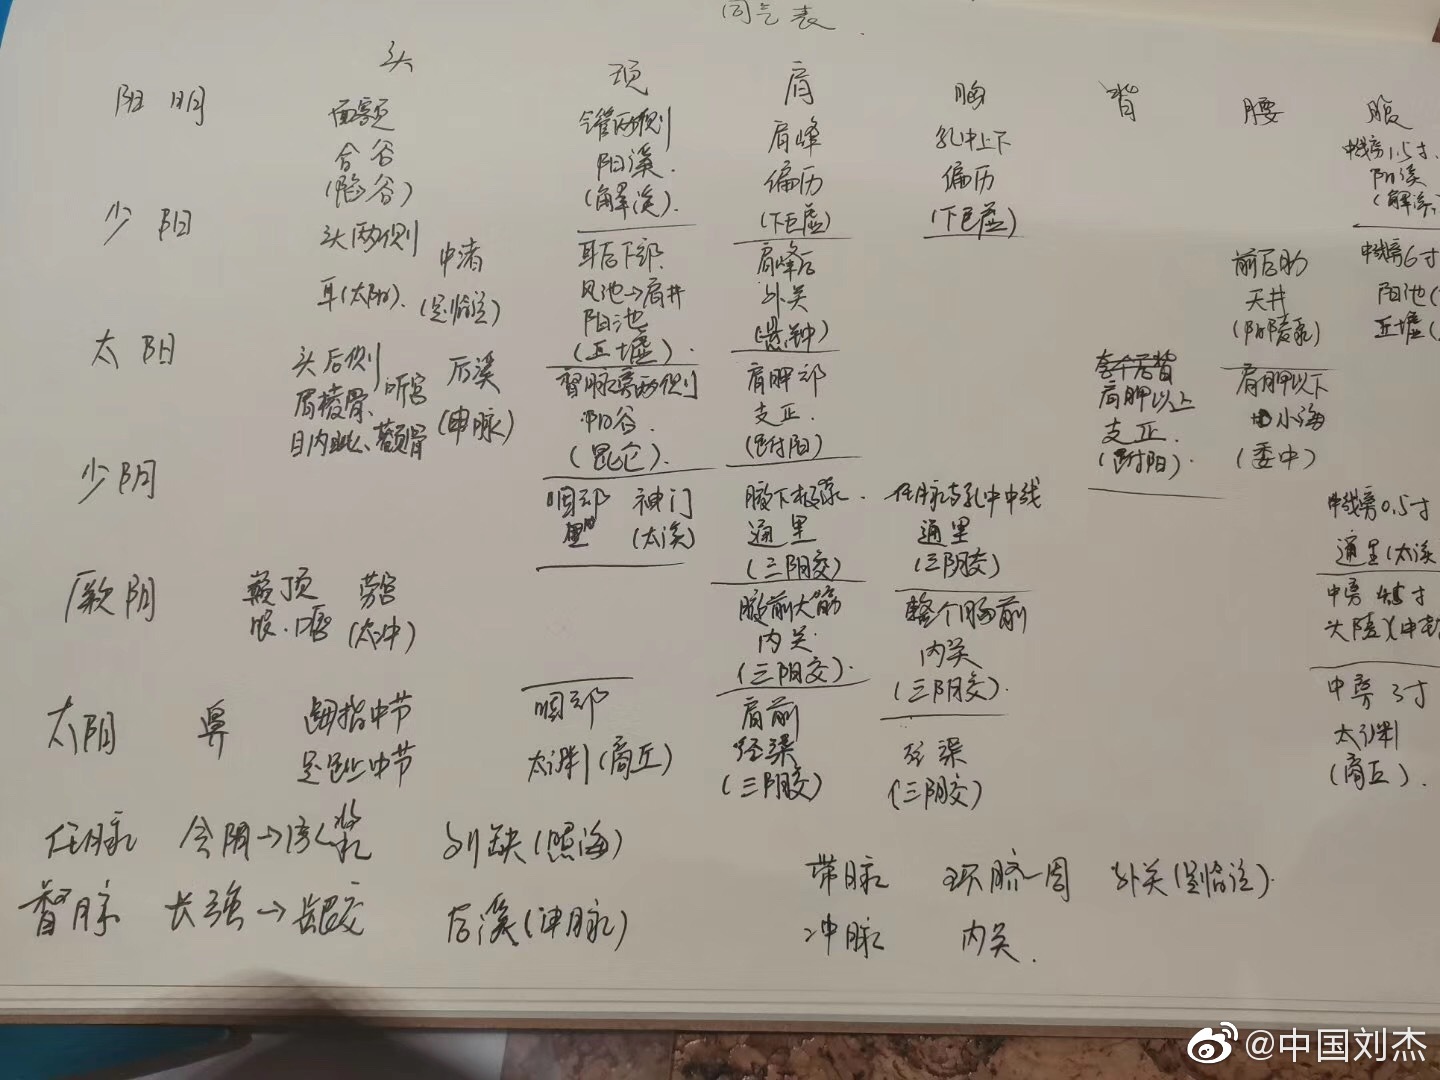 同气表.
头 项 肩 胸 背 腰 腹
阳明
面额
合谷
(陷谷)
令管两侧
阳溪.
(解溪).
肩峰
偏历
(下巨虚)
乳中上下
偏历
(下巨虚)
中线旁1.5寸.
阳溪
(解溪.
少阳
头两侧
耳(太阳).
中渚
(足临泣)
耳后下部.
风池→肩井
阳池
(丘墟).
肩峰后
外关
(悬钟)
前后肋
天井
(阳陵泉)
中线旁6寸
阳池(
丘墟(
太阳
头后侧
眉棱骨、听宫
目内眦、颧骨
后溪
(申脉)
督脉旁两侧
阳谷.
(昆仑).
肩胛部
支正.
(跗阳)
肩胛以上
支正.
(跗阳).
肩胛以下
小海
(委中)
少阴
咽部 神门
(太溪)
腋下极泉.
通里
(三阴交)
任脉与乳中中线
通里
(三阴交)
中线旁0.5寸
通里(太溪
厥阴
巅顶 劳宫
眼. (太冲)
腋前大筋
内关
(三阴交).
整个胸前
内关
(三阴交).
中旁 寸
太阴
鼻
拇指中节
足趾中节
咽部
太渊(商丘)
肩前
经渠
(三阴交)
经渠
(三阴交)
中旁3寸
太渊
(商丘).
任脉 会阴→承浆 列缺(照海)
督脉 长强→龈交 后溪(申脉)
带脉 环脐一周 外关(足临泣).
冲脉 内关.
@中国刘杰